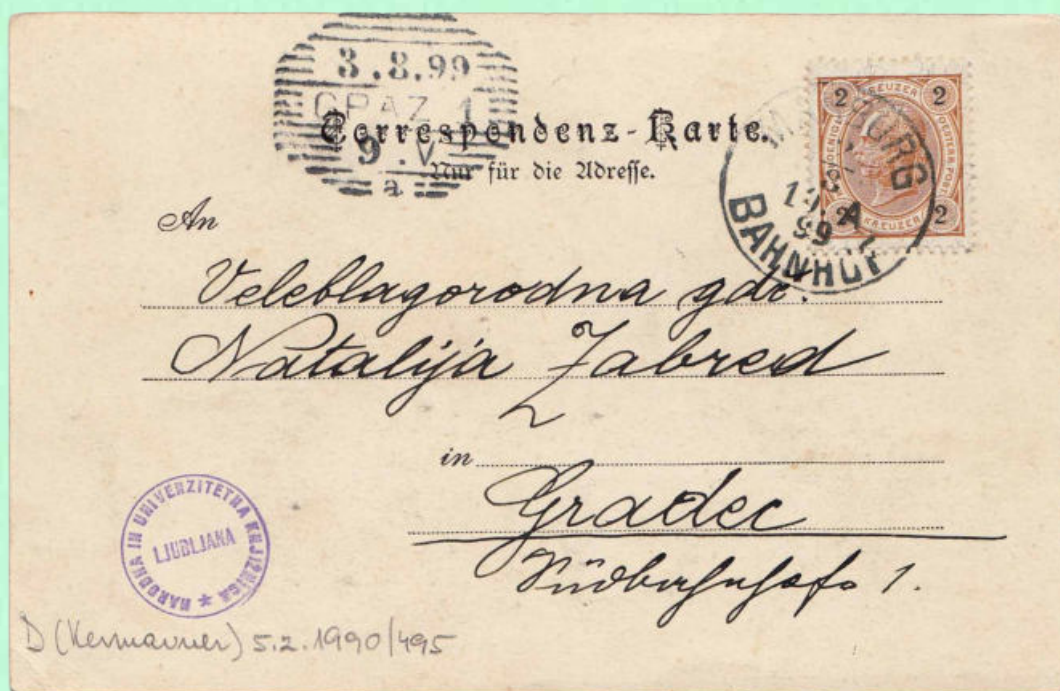 3.8.99
GRAZ 1
9.V
a
Correspondenz-Karte.
Nur für die Adresse.
2 KREUZER 2
2 KREUZER 2
BURG
99
BAHNHOF
An
Veleblagorodna gdč.
Natalija Zabred
in
Gradec
Südbahnhof 1.
NARODNA IN UNIVERZITETNA KNJIŽNICA
LJUBLJANA
D (Kermavner) 5.2.1990/495